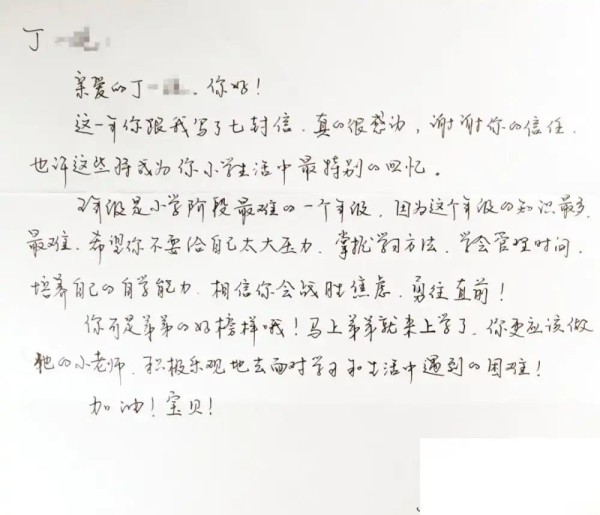 丁一
亲爱的丁一 、你好！
这一年你跟我写了七封信，真的很感动，谢谢你的信任，
也许这些将成为你小学生活中最特别的回忆。
五年级是小学阶段最难的一个年级，因为这个年级的知识最多，
最难，希望你不要给自己太大压力，掌握学习方法，学会管理时间，
培养自己的自学能力，相信你会战胜焦虑，勇往直前！
你可是弟弟的好榜样哦！马上弟弟就来上学了，你更应该做
他的小老师，积极乐观地去面对学习和生活中遇到的困难！
加油！宝贝！